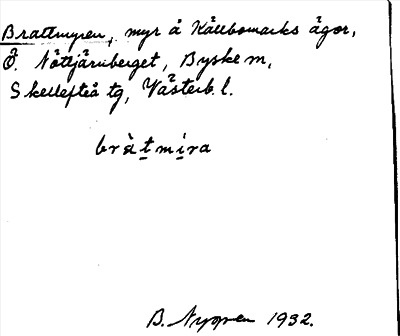 Brattmyren, myr å Kållbomarks ägor,
Ö. Nöttjärnberget, Byske sn,
Skellefteå tg, Västerb. l.
bràt̲mi̲ra
B. Nygren 1932.